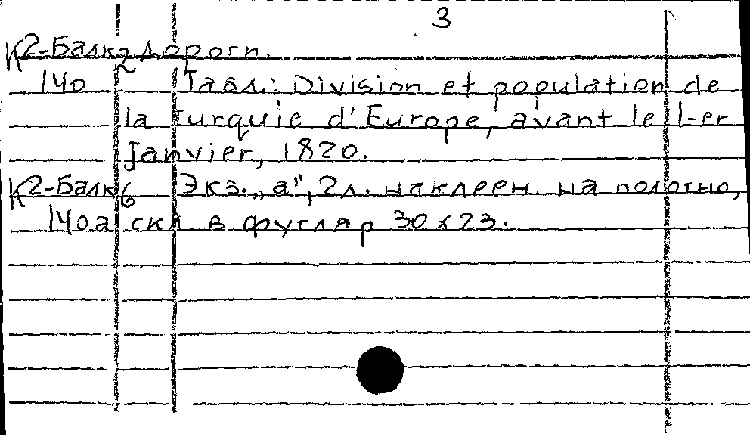 3
К2-Балк/2 дороги.
140 Табл.: Division et population de
la Turquie d'Europe, avant le 1-er
Janvier, 1820.
К2-Балк/6 Экз. „а", 2л. наклеен. на полотно,
140а скл в футляр 30х23.